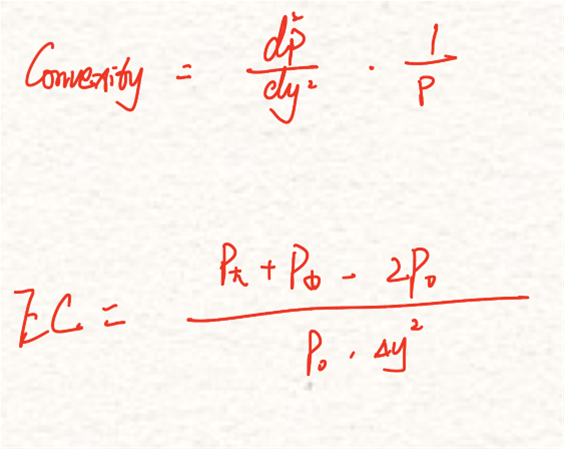 Convexity = d²p/dy² · 1/P
EC = (P大 + P小 - 2P₀) / (P₀ · Δy²)